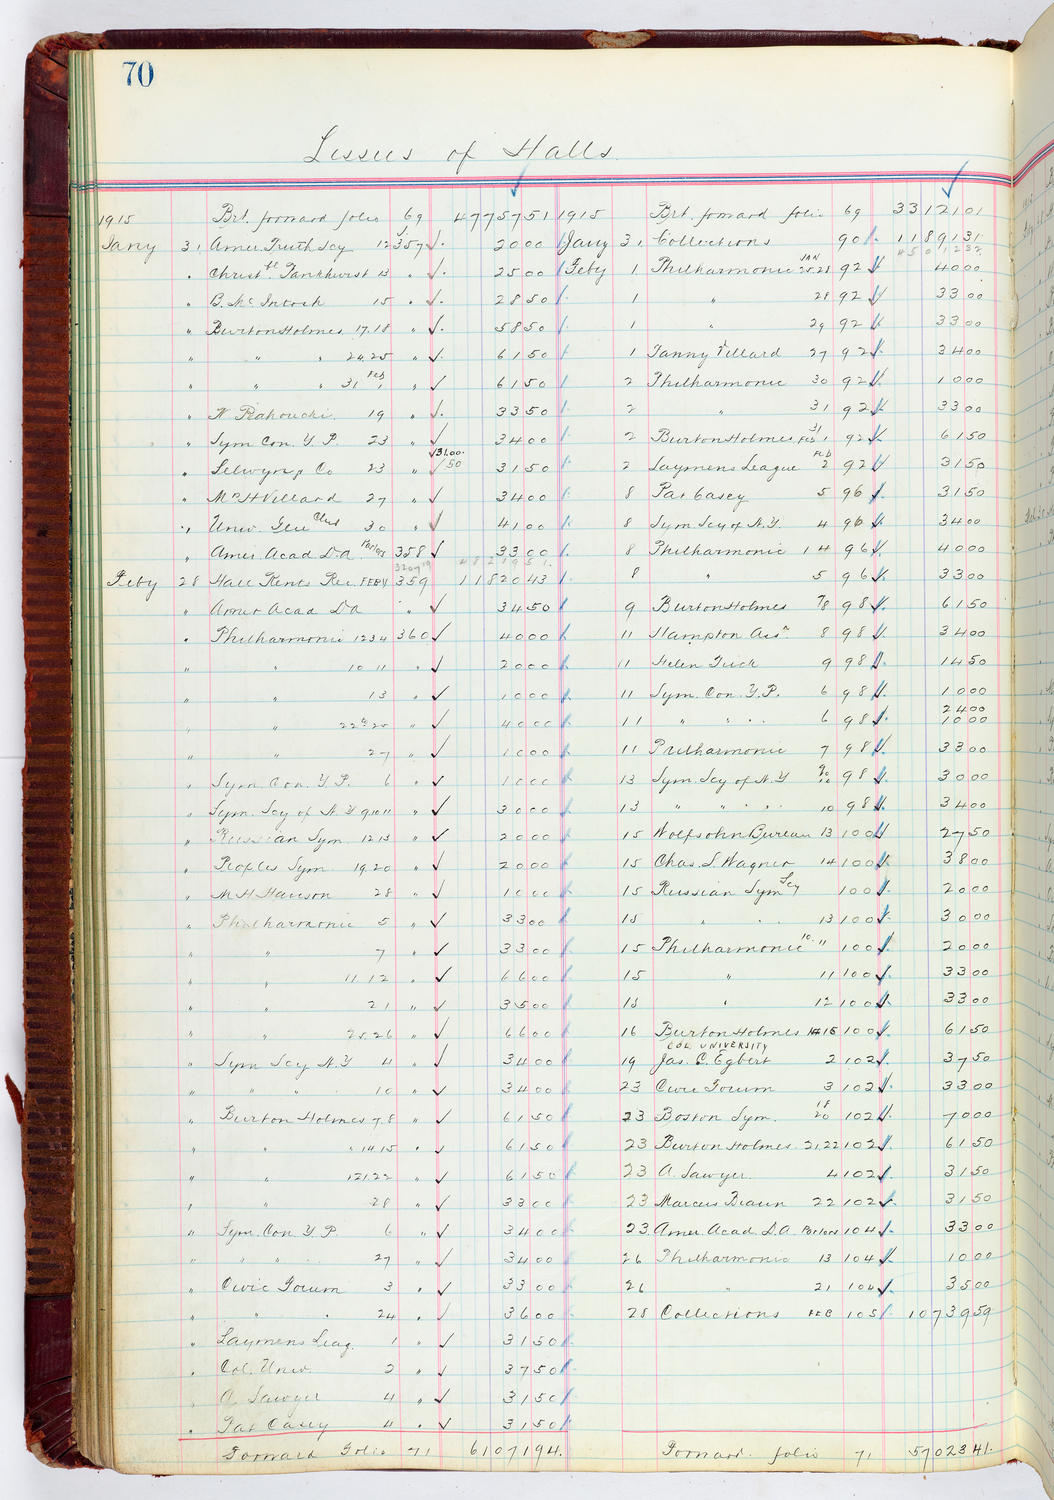 70
Lessees of Halls
1915 Brt. forward folio 69 4775751 1915 Brt. forward folio 69 3312101
Jany 31 Amer Truth Scy 12 357 2000 Jany 31 Collections 90 1189131
" Christbl Pankhurst 13 " 2500 Feby 1 Philharmonic JAN 25.28 92 4000
" B. McIntosh 15 " 2850 1 " 28 92 3300
" Burton Holmes 17.18 " 5850 1 " 29 92 3300
" " " 24.25 " 6150 1 Fanny Villard 27 92 3400
" " " 31 Feb 1 " 6150 2 Philharmonic 30 92 1000
" 19 " 3350 2 " 31 92 3300
" Sym Con. Y.P. 23 " 3400 2 Burton Holmes 31 Feb 1 92 6150
" Selwyn & Co 23 " 3100. 50 3150 2 Laymens League Feb 2 92 3150
" Mrs H Villard 27 " 3400 8 Pat Casey 5 96 3150
" Univ. Glee Club 30 " 4100 8 Sym Scy of N.Y. 4 96 3400
" Amer. Acad D.A. Parlors 358 3300 8 Philharmonic 1 4 96 4000
Feby 28 Hall Rents Rec. FEBY 359 1182043 8 " 5 96 3300
" Amer Acad D.A " 3450 9 Burton Holmes 7/8 98 6150
" Philharmonic 1234 360 4000 11 Hampton Assn 8 98 3400
" " 10 11 " 2000 11 Helen 9 98 1450
" " 13 " 1000 11 Sym. Con. Y.P. 6 98 1000
" " 22 & 25 " 4000 11 " " " 6 98 2400 1000
" " 27 " 1000 11 Philharmonic 7 98 3300
" Sym Con. Y.P. 6 " 1000 13 Sym. Scy of N.Y 9 10 98 3000
" Sym. Scy of N.Y 9 10 11 " 3000 13 " " " " 10 98 3400
" Russian Sym 12 13 " 2000 15 Wolfsohn Bureau 13 100 2750
" Peoples Sym 19.20 " 2000 15 Chas. L Wagner 14 100 3800
" M H Hanson 28 " 1000 15 Russian Sym Scy 100 2000
" Philharmonic 5 " 3300 15 " " " 13 100 3000
" " 7 " 3300 15 Philharmonic 10. 11 100 2000
" " 11 12 " 6600 15 " 11 100 3300
" " 21 " 3500 15 " 12 100 3300
" " 25.26 " 6600 16 Burton Holmes 14 15 100 6150
" Sym Scy N.Y 4 " 3400 19 COL. UNIVERSITY Jas. C. Egbert 2 102 3750
" " " 10 " 3400 23 Civic Forum 3 102 3300
" Burton Holmes 7.8 " 6150 23 Boston Sym. 18 20 102 7000
" " " 14 15 " 6150 23 Burton Holmes 21.22 102 6150
" " 121.22 " 6150 23 A. Sawyer 4 102 3150
" " 28 " 3300 23 Marcus Braun 22 102 3150
" Sym. Con Y.P 6 " 3400 23 Amer. Acad D.A. Parlors 104 3300
" " " " 27 " 3400 26 Philharmonic 13 104 1000
" Civic Forum 3 " 3300 26 " 21 104 3500
" " " 24 " 3600 28 Collections FEB 105 1073959
" Laymens Leag. 1 " 3150
" Col. Univ. 2 " 3750
" A Sawyer 4 " 3150
" Pat Casey 4 " 3150
Forward Folio 71 6107194. Forward folio 71 5702341.